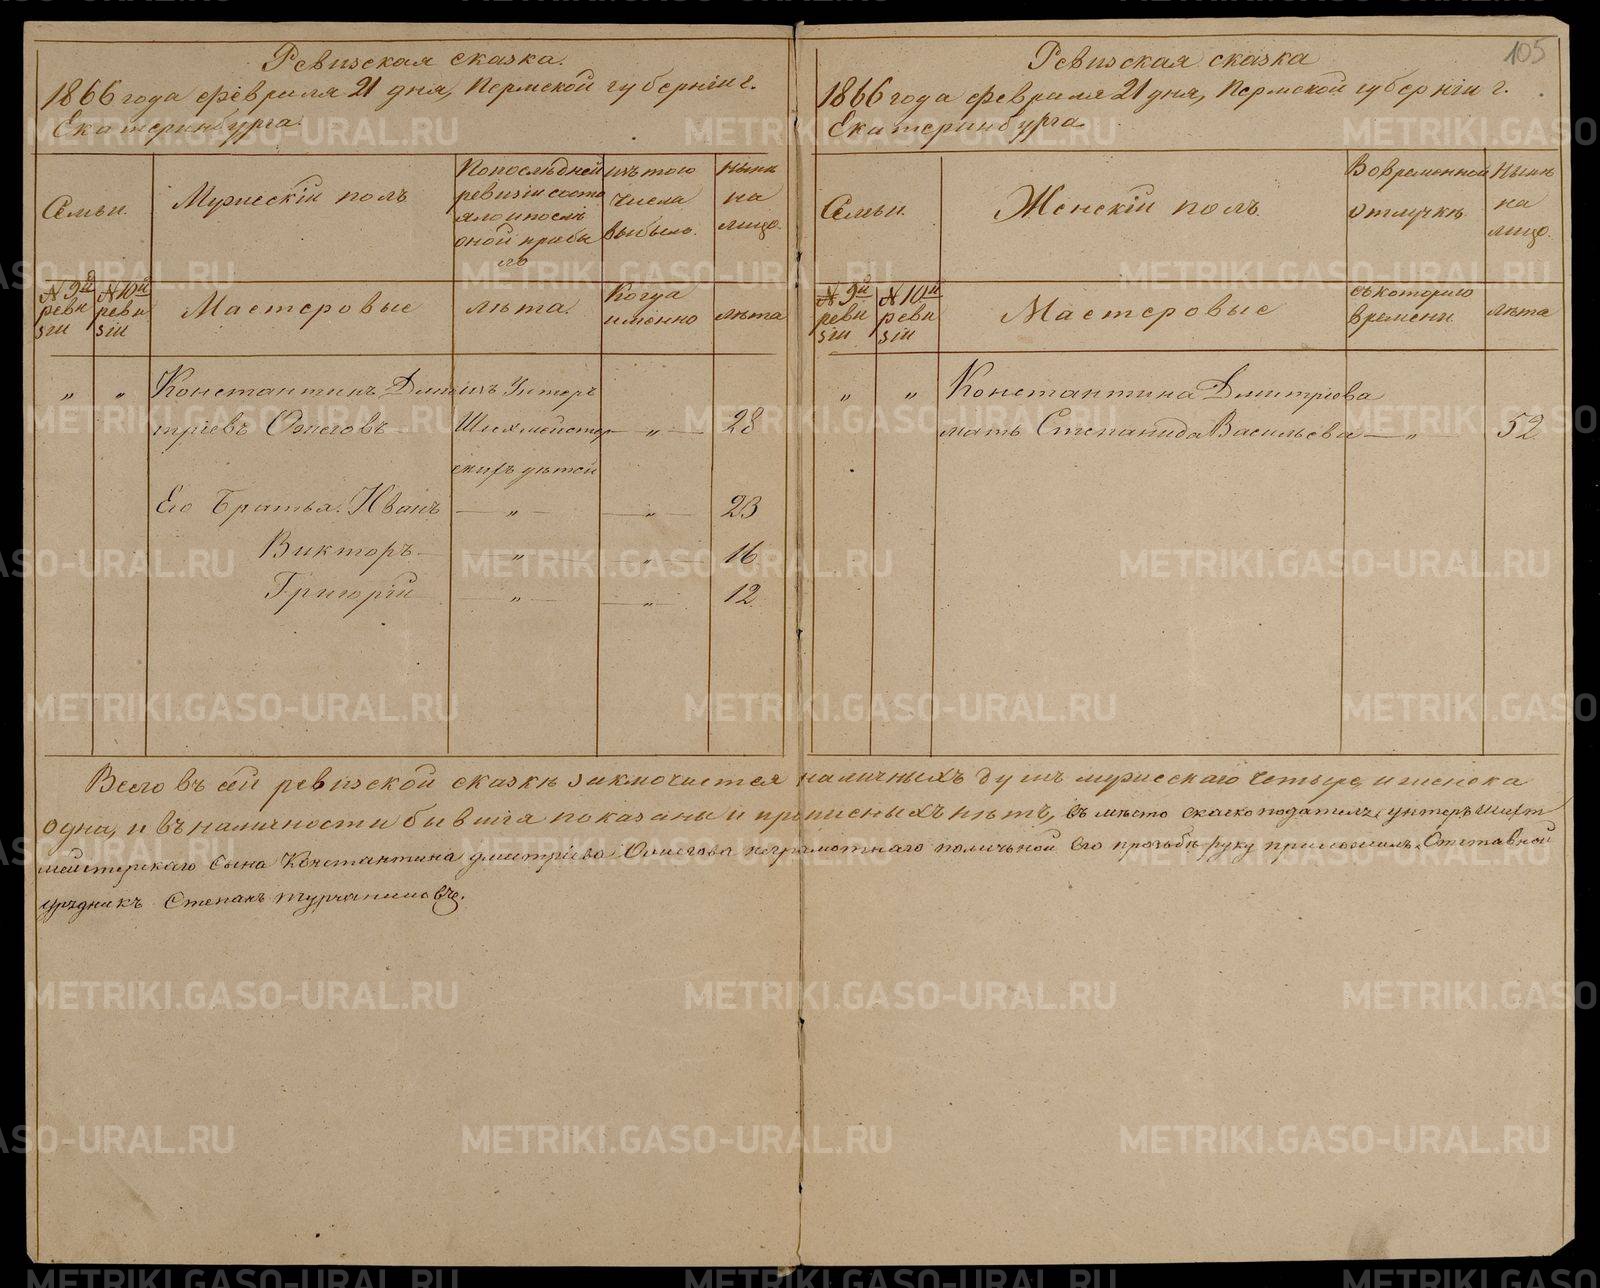 Ревизская сказка.
1866 года февраля 21 дня, Пермской губернiи г.
Екатеринбурга.
Семьи.
Мужескiй полъ
По последней
ревизiи состо
яло и посль
оной прибы
ло
изъ того
числа
выбыло.
Нынѣ
на
лицо.
№ 9й
реви
зiи
№ 10й
реви
зiи
Мастеровые
лѣта.
Когда
именно
лѣта
„ „ Константинъ Дми изъ Унтеръ
трiевъ Ожеговъ Шихмейстер — „ — 28
скихъ дѣтей
Его Братья. Иванъ — „ — — „ — 23
Викторъ — „ — — „ — 16
Григорiй — „ — — „ — 12
105
Ревизская сказка
1866 года февраля 21 дня, Пермской губернiи г.
Екатеринбурга
Семьи.
Женскiй полъ.
Во временной
отлучкѣ.
Нынѣ
на
лицо.
№ 9й
реви
зiи
№ 10й
реви
зiи
Мастеровые
съ котораго
времени.
лѣта
„ „ Константина Дмитрiева
мать Степанида Васильева — „ — 52
Всего въ сей ревизской сказкѣ заключается наличныхъ душъ мужескаго четыре, и женска
одна, и въ наличности бывшiя показаны и прописныхъ нѣтъ, въ мѣсто сказкоподателя, унтеръ шихт
мейстерскаго сына Константина дмитрiева Ожегова неграмотнаго поличьной его прозьбѣ руку приложилъ Отставной
урядникъ Степанъ турчаниновъ.
METRIKI.GASO-URAL.RU